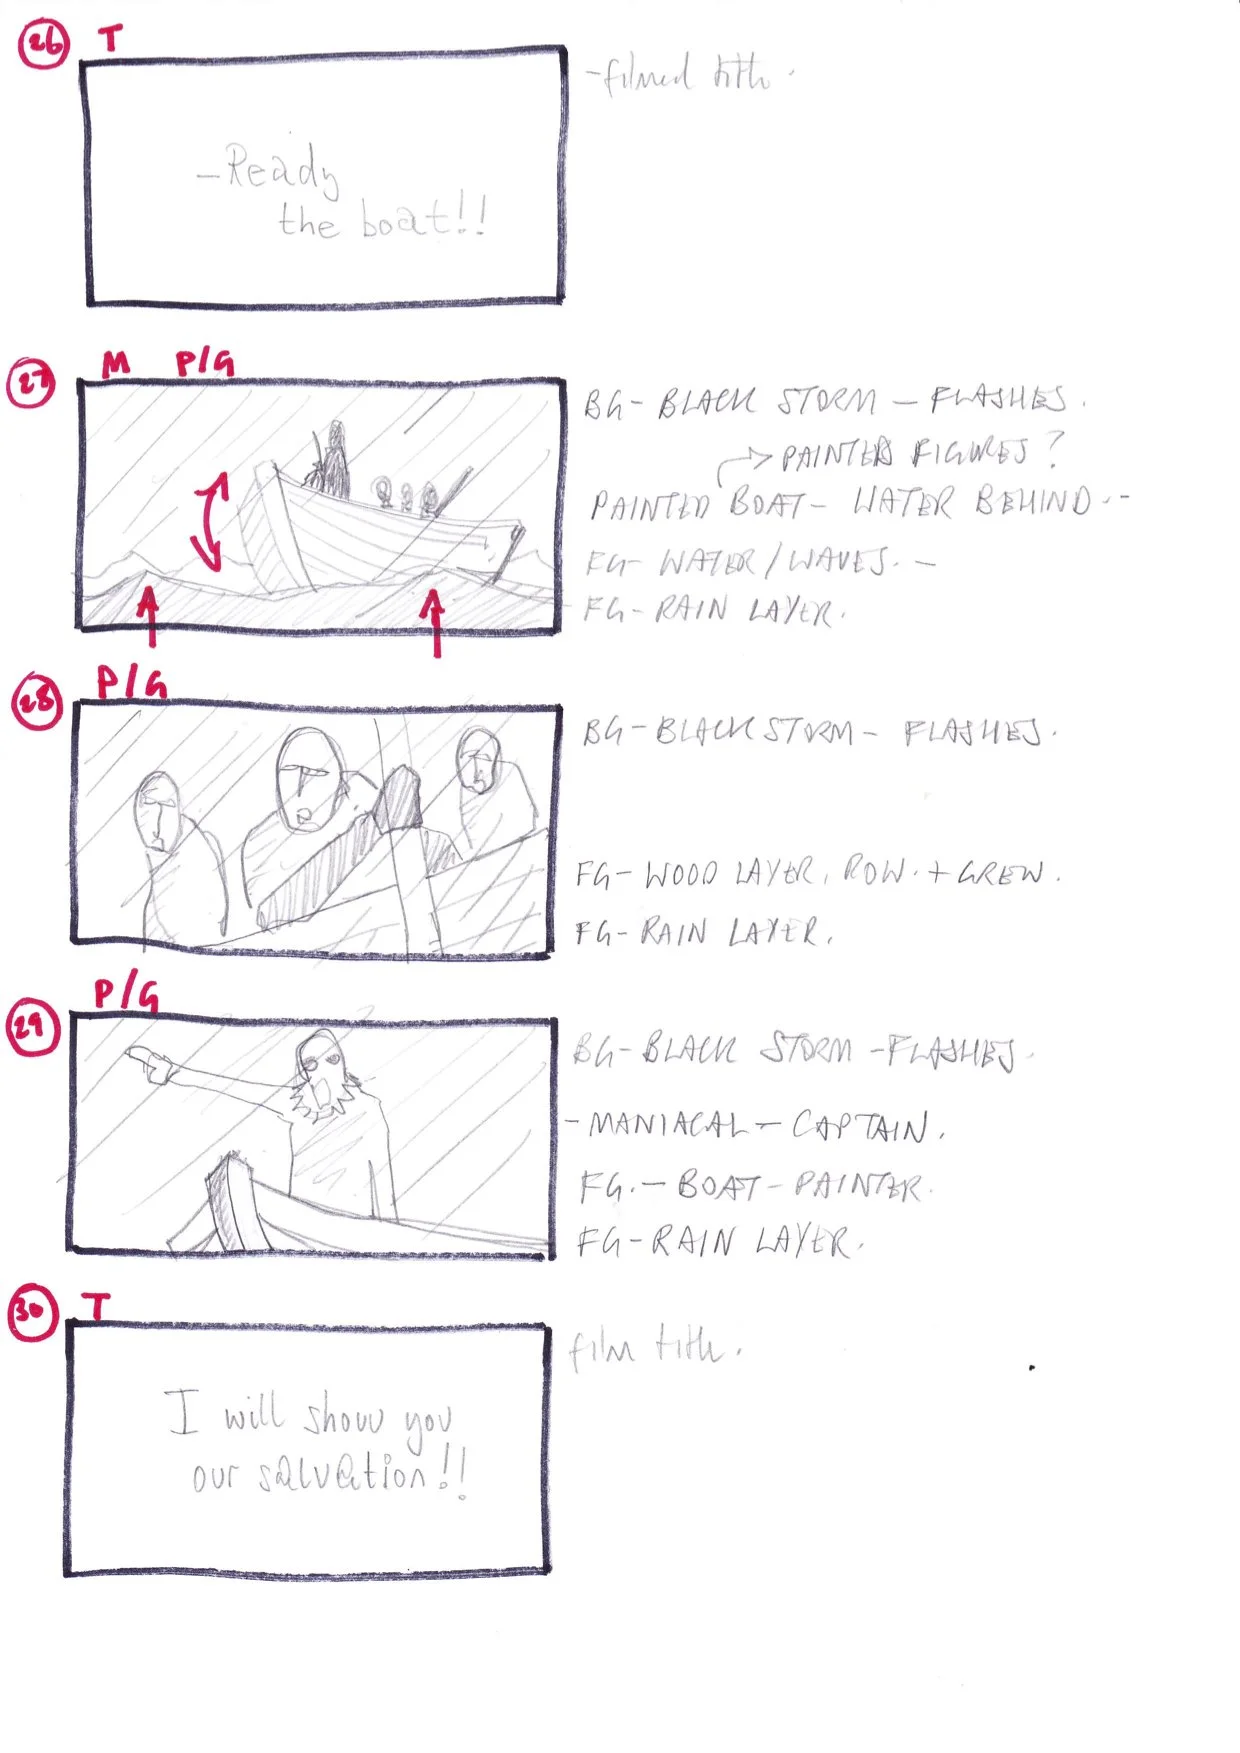 26 T
-filmed title.
-Ready
the boat!!
27 M P/G
BG-BLACK STORM-FLASHES.
PAINTED FIGURES?
PAINTED BOAT- WATER BEHIND.--
FG- WATER/WAVES.-
FG-RAIN LAYER.
28 P/G
BG-BLACK STORM- FLASHES.
FG-WOOD LAYER, ROW.+CREW.
FG-RAIN LAYER.
29 P/G
BG-BLACK STORM-FLASHES.
-MANIACAL-CAPTAIN.
FG.-BOAT-PAINTER.
FG-RAIN LAYER.
30 T
film title.
I will show you
our salvation!!